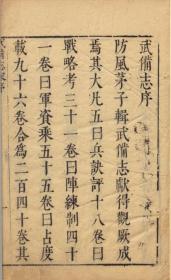 武備志序
防風茅子輯武備志獻得觀厥成
焉其大凡五曰兵訣評十八卷曰
戰略考三十一卷曰陣練制四十
一卷曰軍資乘五十五卷曰占度
載九十六卷合為二百四十卷其